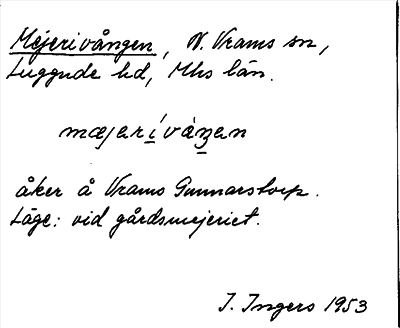 Mejerivången, N. Vrams sn,
Luggude hd, Mhs län.
mæjerí̲vàŋ̲en
åker å Vrams Gunnarstorp.
Läge: vid gårdsmejeriet.
I. Ingers 1953